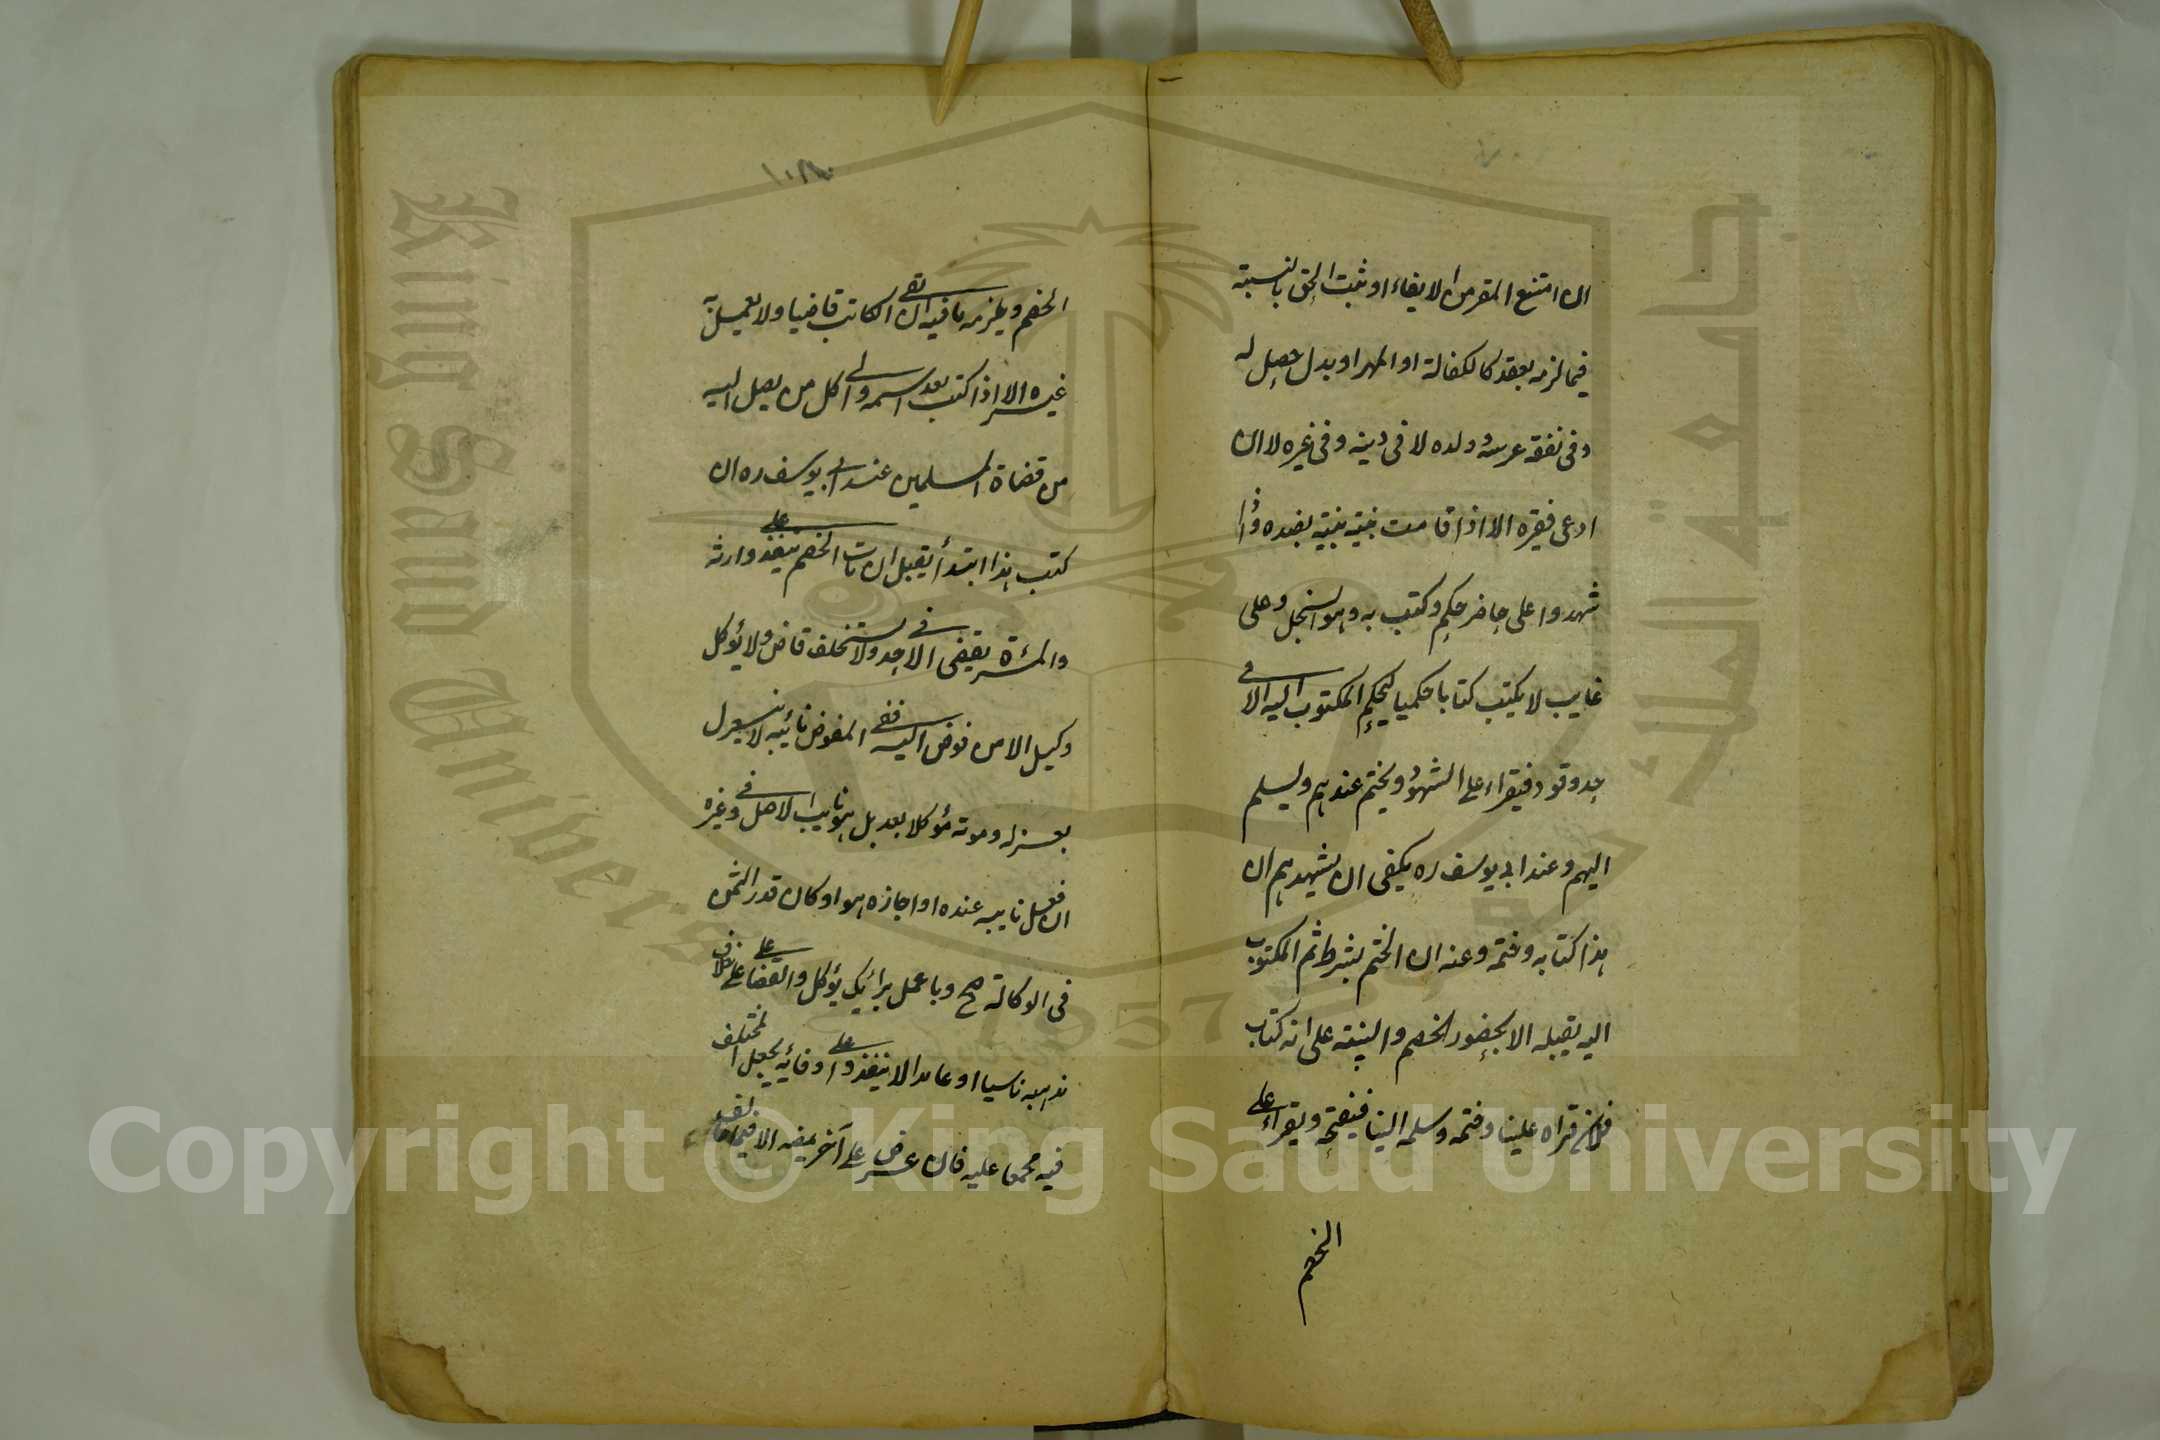 ان امتنع المقر من الايفاء او ثبت الحق بالبينة
فيما لزمه بعقد كالكفالة او المهر او بدل حصل له
وفى نفقة عرسه وولده لا فى دينه وفى غيره لا ان
ادعى فقره الا اذا قامت بينة بضده واذا
شهدوا على حاضر حكم وكتب به وهو السجل وعلى
غايب لا يكتب كتابا حكميا ليحكم المكتوب اليه الا فى
حد وقود فيقراء على الشهود ويختم عندهم ويسلم
اليهم وعند ابى يوسف ره يكفى ان يشهدهم ان
هذا كتابه وختمه وعنه ان الختم بشرط ثم المكتوب
اليه يقبله الا بحضور الخصم والبينة على انه كتاب
فلان قراه علينا وختمه وسلمه الينا فيفتحه ويقراء على
الخصم
١٠٨
الخصم ويلزمه ما فيه ان بقى الكاتب قاضيا ولا يعمل به
غيره الا اذا كتب بعد اسمه والى كل من يصل اليه
من قضاة المسلمين عند ابى يوسف ره ان
كتب هذا ابتدأ يقبل ان مات الخصم ينفذ على وارثه
والمرءة يقضى الا فى حد ولا يستخلف قاض ولا يؤكل
وكيل الا من فوض اليه ففى المفوض نائبه لا ينعزل
بعزله وموته مؤكلا بعد بل هو نايب الاصل وفى غيره
ان فعل نايبه عنده او اجازه هو او كان قدر الثمن
فى الوكالة صح وباعمل برائيك يؤكل والقضا على خلاف
مذهبه ناسيا او عامدا لا ينفذ وعلى وفائيه يجعل المختلف
فيه مجمعا عليه فان عرض على آخر يمضه الا فيما خالف
Copyright © King Saud University
King Saud University
جامعة الملك سعود
1957